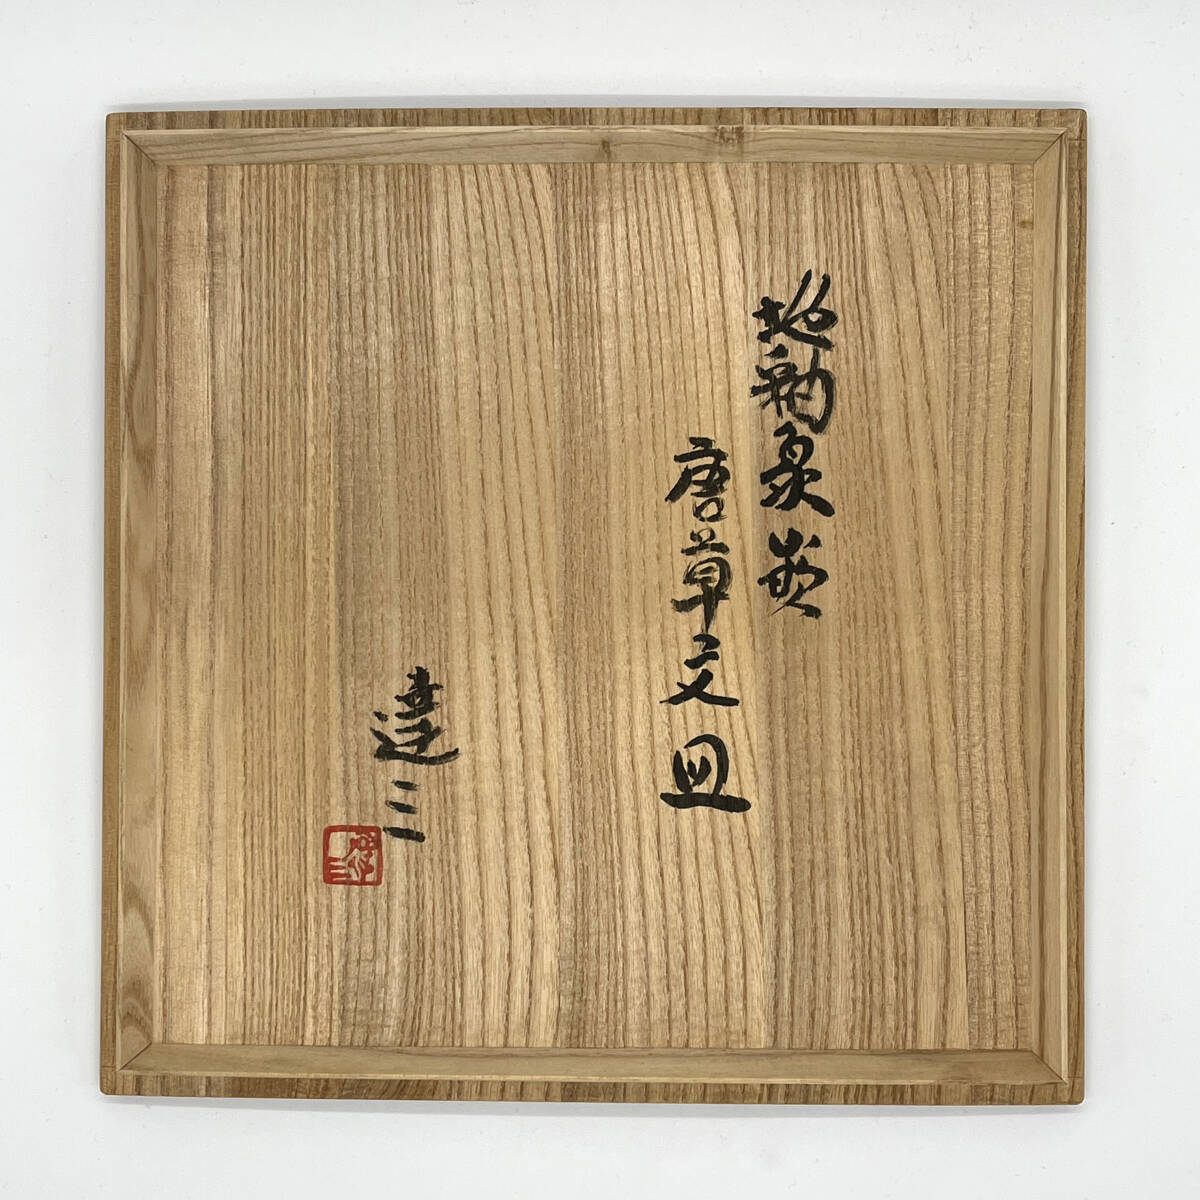 地釉象嵌
唐草文皿
達三